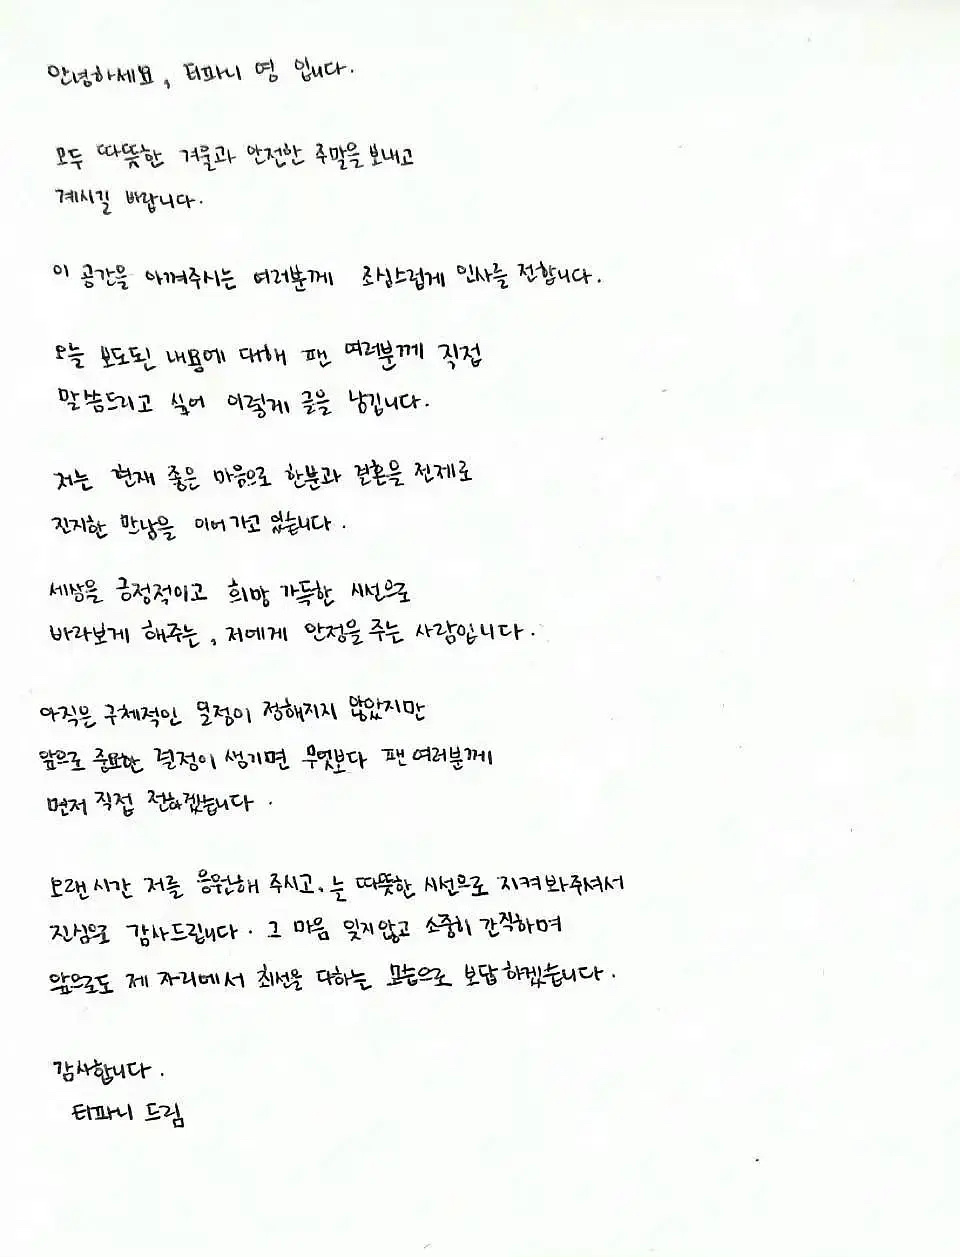 안녕하세요, 티파니 영 입니다.
모두 따뜻한 겨울과 안전한 주말을 보내고
계시길 바랍니다.
이 공간을 아껴주시는 여러분께 조심스럽게 인사를 전합니다.
오늘 보도된 내용에 대해 팬 여러분께 직접
말씀드리고 싶어 이렇게 글을 남깁니다.
저는 현재 좋은 마음으로 한분과 결혼을 전제로
진지한 만남을 이어가고 있습니다.
세상을 긍정적이고 희망 가득한 시선으로
바라보게 해주는, 저에게 안정을 주는 사람입니다.
아직은 구체적인 일정이 정해지지 않았지만
앞으로 중요한 결정이 생기면 무엇보다 팬 여러분께
먼저 직접 전하겠습니다.
오랜 시간 저를 응원해 주시고, 늘 따뜻한 시선으로 지켜봐주셔서
진심으로 감사드립니다. 그 마음 잊지 않고 소중히 간직하며
앞으로도 제 자리에서 최선을 다하는 모습으로 보답 하겠습니다.
감사합니다.
티파니 드림